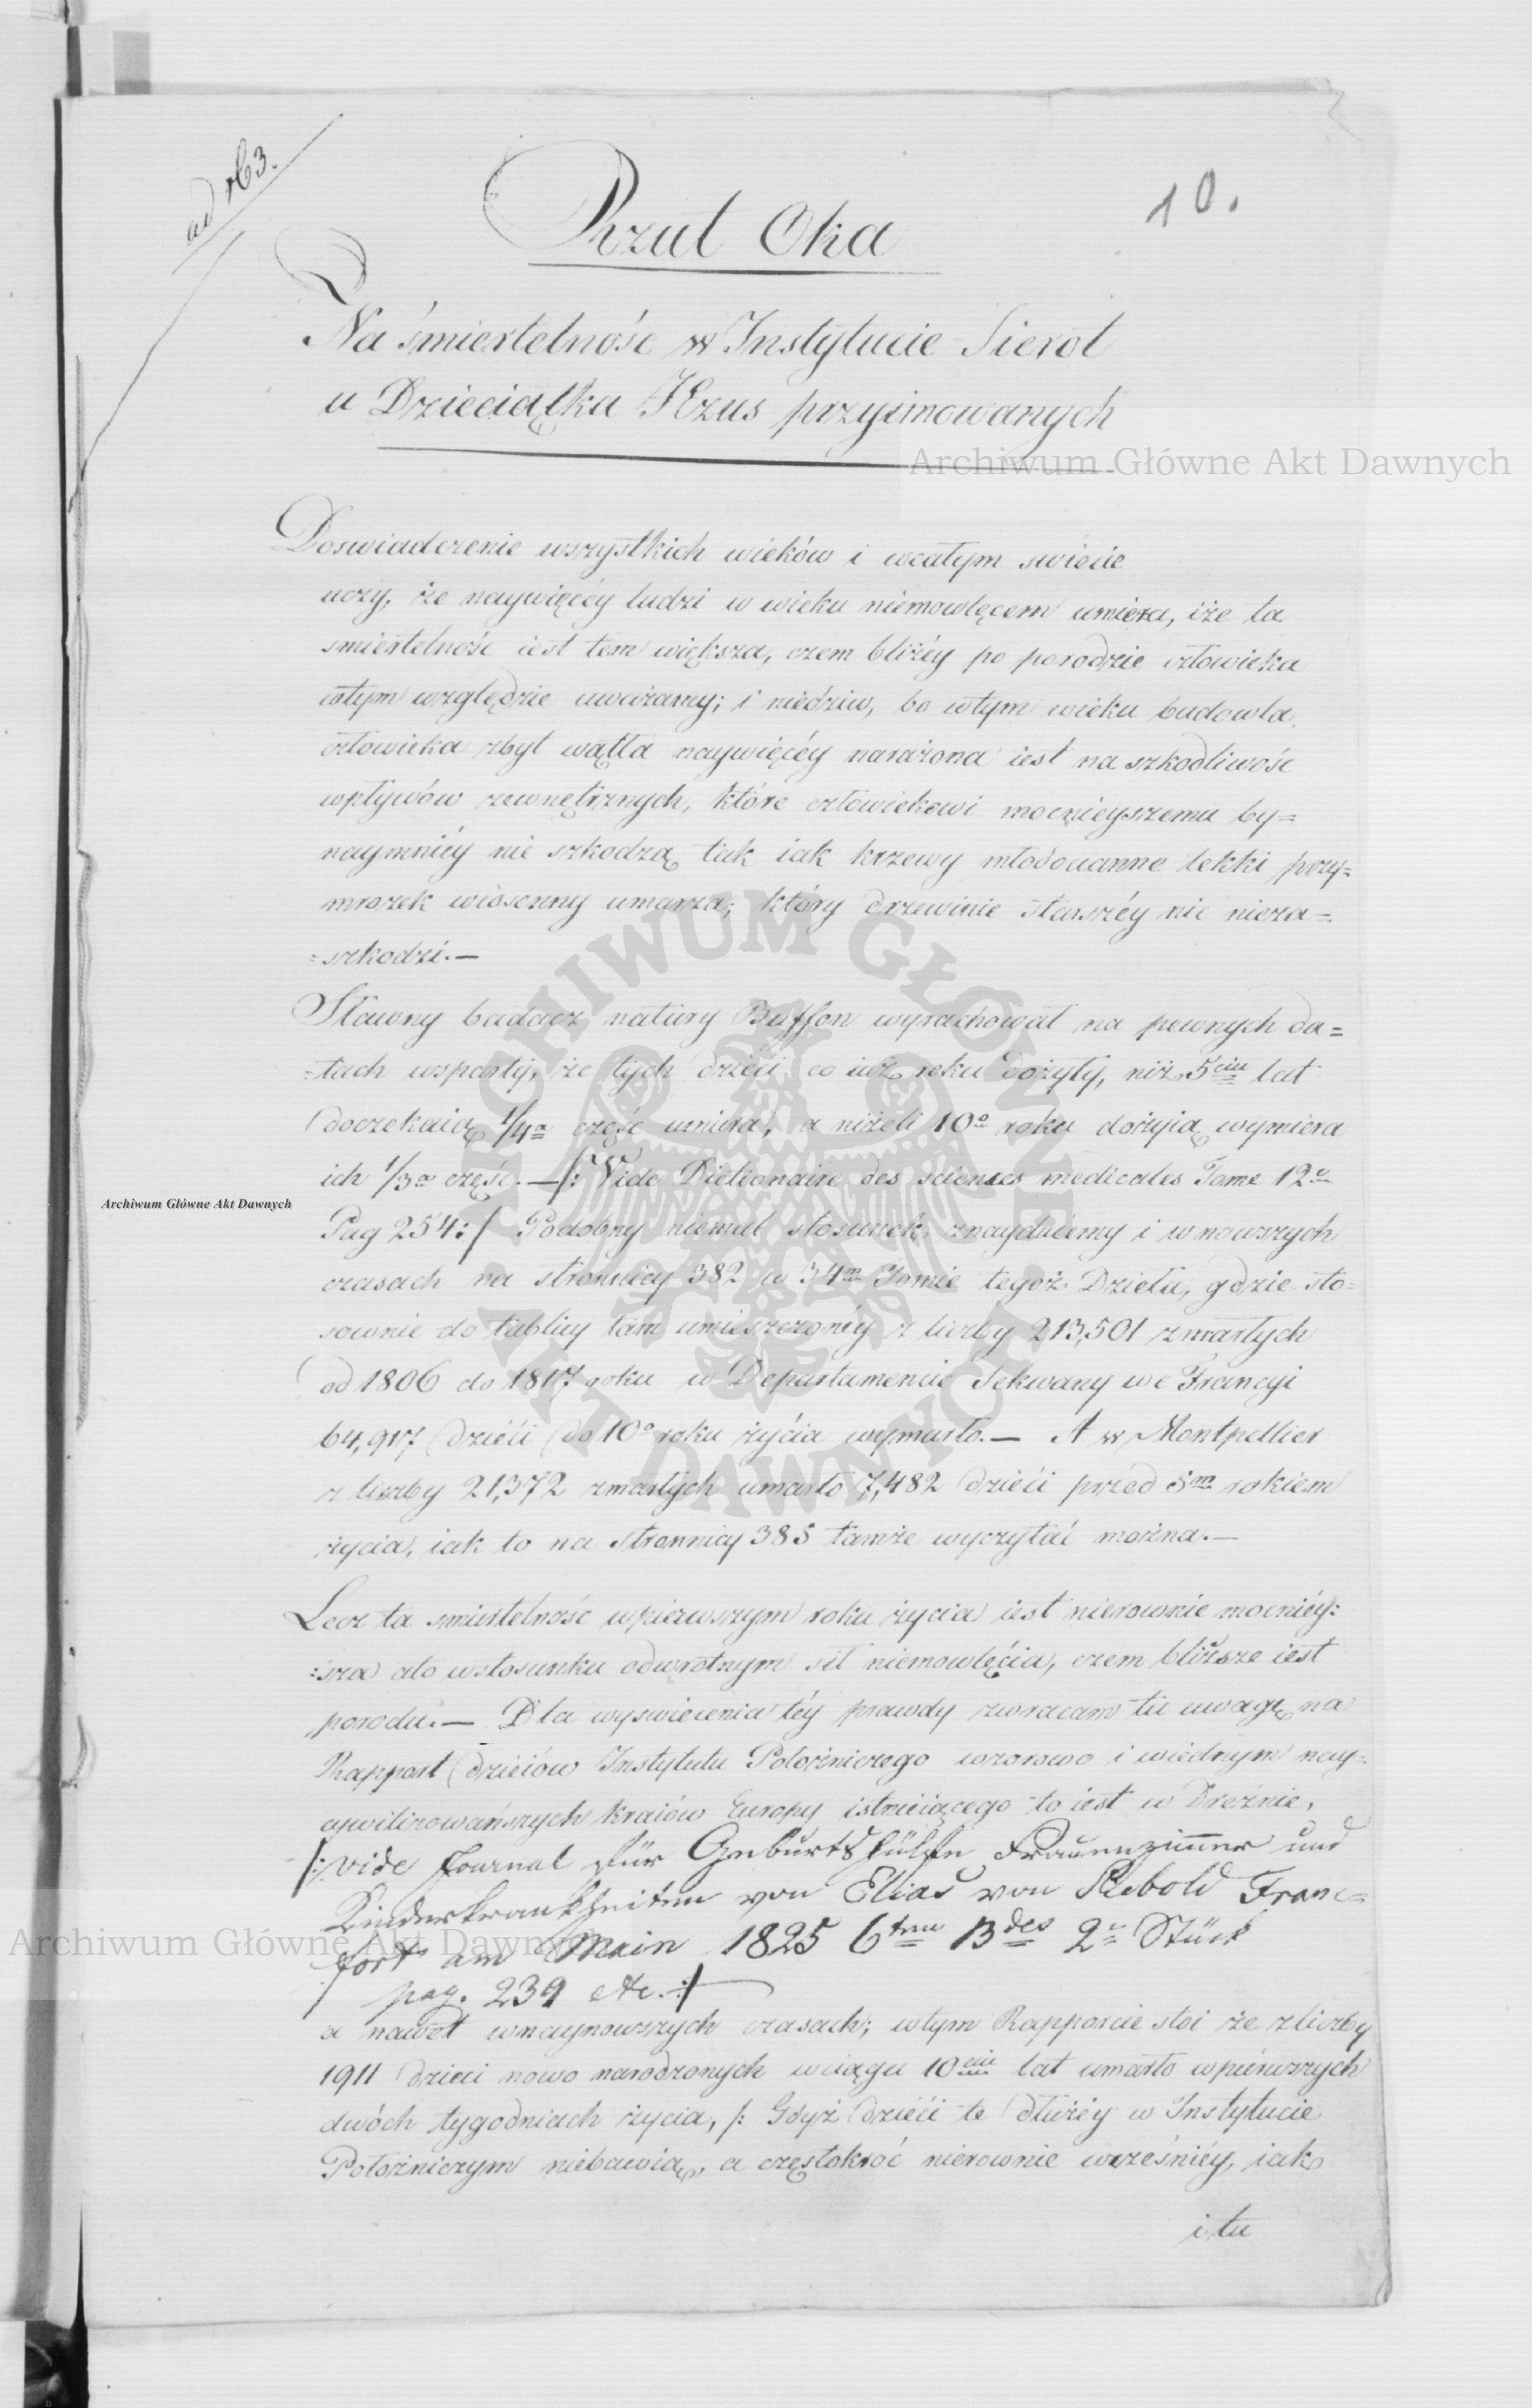 ad N 3.
10.
Rzut Oka
Na śmiertelność w Instytucie Sierot
u Dzieciątka JEzus przyimowanych
Archiwum Główne Akt Dawnych
Doswiadczenie wszystkich wieków i wcałym swiecie
uczy, że naywięcéy ludzi w wieku niemowlęcem umiera, iże ta
smiertelność iest tem większa, czem bliźéy po porodzie człowieka
wtym względzie uważamy; i niedziw, bo wtym wieku budowla
człowieka zbyt wątła naywięcéy narażona iest na szkodliwość
wpływów zewnętrznych, które człowiekowi mocnieyszemu by=
naymniéy nie szkodzą tak iak krzewy młodocianne lekki przy=
mrozek wiosenny umarza; który drzewinie starszéy nic nieza=
=szkodzi.—
Sławny badacz natury Buffon wyrachował na pewnych da=
=tach wsparty, że tych dzieci co iuż roku dożyły, niż 5ciu lat
doczekaią 1/4a część umiera, a niżeli 10o roku dożyią wymiera
ich 1/3a część.—/: Vide Dictionaire des sciences medicales Tome 12e
Pag 254:/ Podobny niemal stosunek znayduiemy i w nowszych
czasach na stronnicy 382 w 34m Tomie tegoż Dzieła, gdzie sto=
sownie do tablicy tam umieszczonéy z liczby 213,501 zmarłych
od 1806 do 1817 roku w Departamencie Sekwany we Francyi
64,917 dzieci do 10o roku życia wymarło.— A w Montpellier
z liczby 21,372 zmarłych umarło 7,482 dzieci przed 5m rokiem
życia, iak to na stronnicy 385 tamże wyczytać można.—
Lecz ta smiertelność wpierwszym roku życia iest nierownie mocniéy:
:sza ato wstosunku odwrotnym sił niemowlęcia, czem bliższe iest
porodu.— Dla wyswiecenia téy prawdy zwracam tu uwagę na
Rapport dzieiów Instytutu Położniczego wzorowo i wiednym nay=
cywilizowańszych kraiów Europy istnieiącego to iest w Dreźnie,
/: vide Journal für Geburtshülfe Frauenzimmer und
Kinderkrankheiten von Elias von Siebold Franc=
fort am Main 1825 6ten Bdes 2s Stück
pag. 239 etc. :/
a nawet wnaynowszych czasach; wtym Rapporcie stoi że zliczby
1911 dzieci nowo narodzonych wciągu 10ciu lat umarło wpierwszych
dwóch tygodniach życia, /: Gdyż dzieci te dłużéy w Instytucie
Położniczym niebawią, a częstokroć nierownie wcześniéy, iak
i tu
Archiwum Główne Akt Dawnych
Archiwum Główne Akt Dawnych
ARCHIWUM GŁÓWNE AKT DAWNYCH